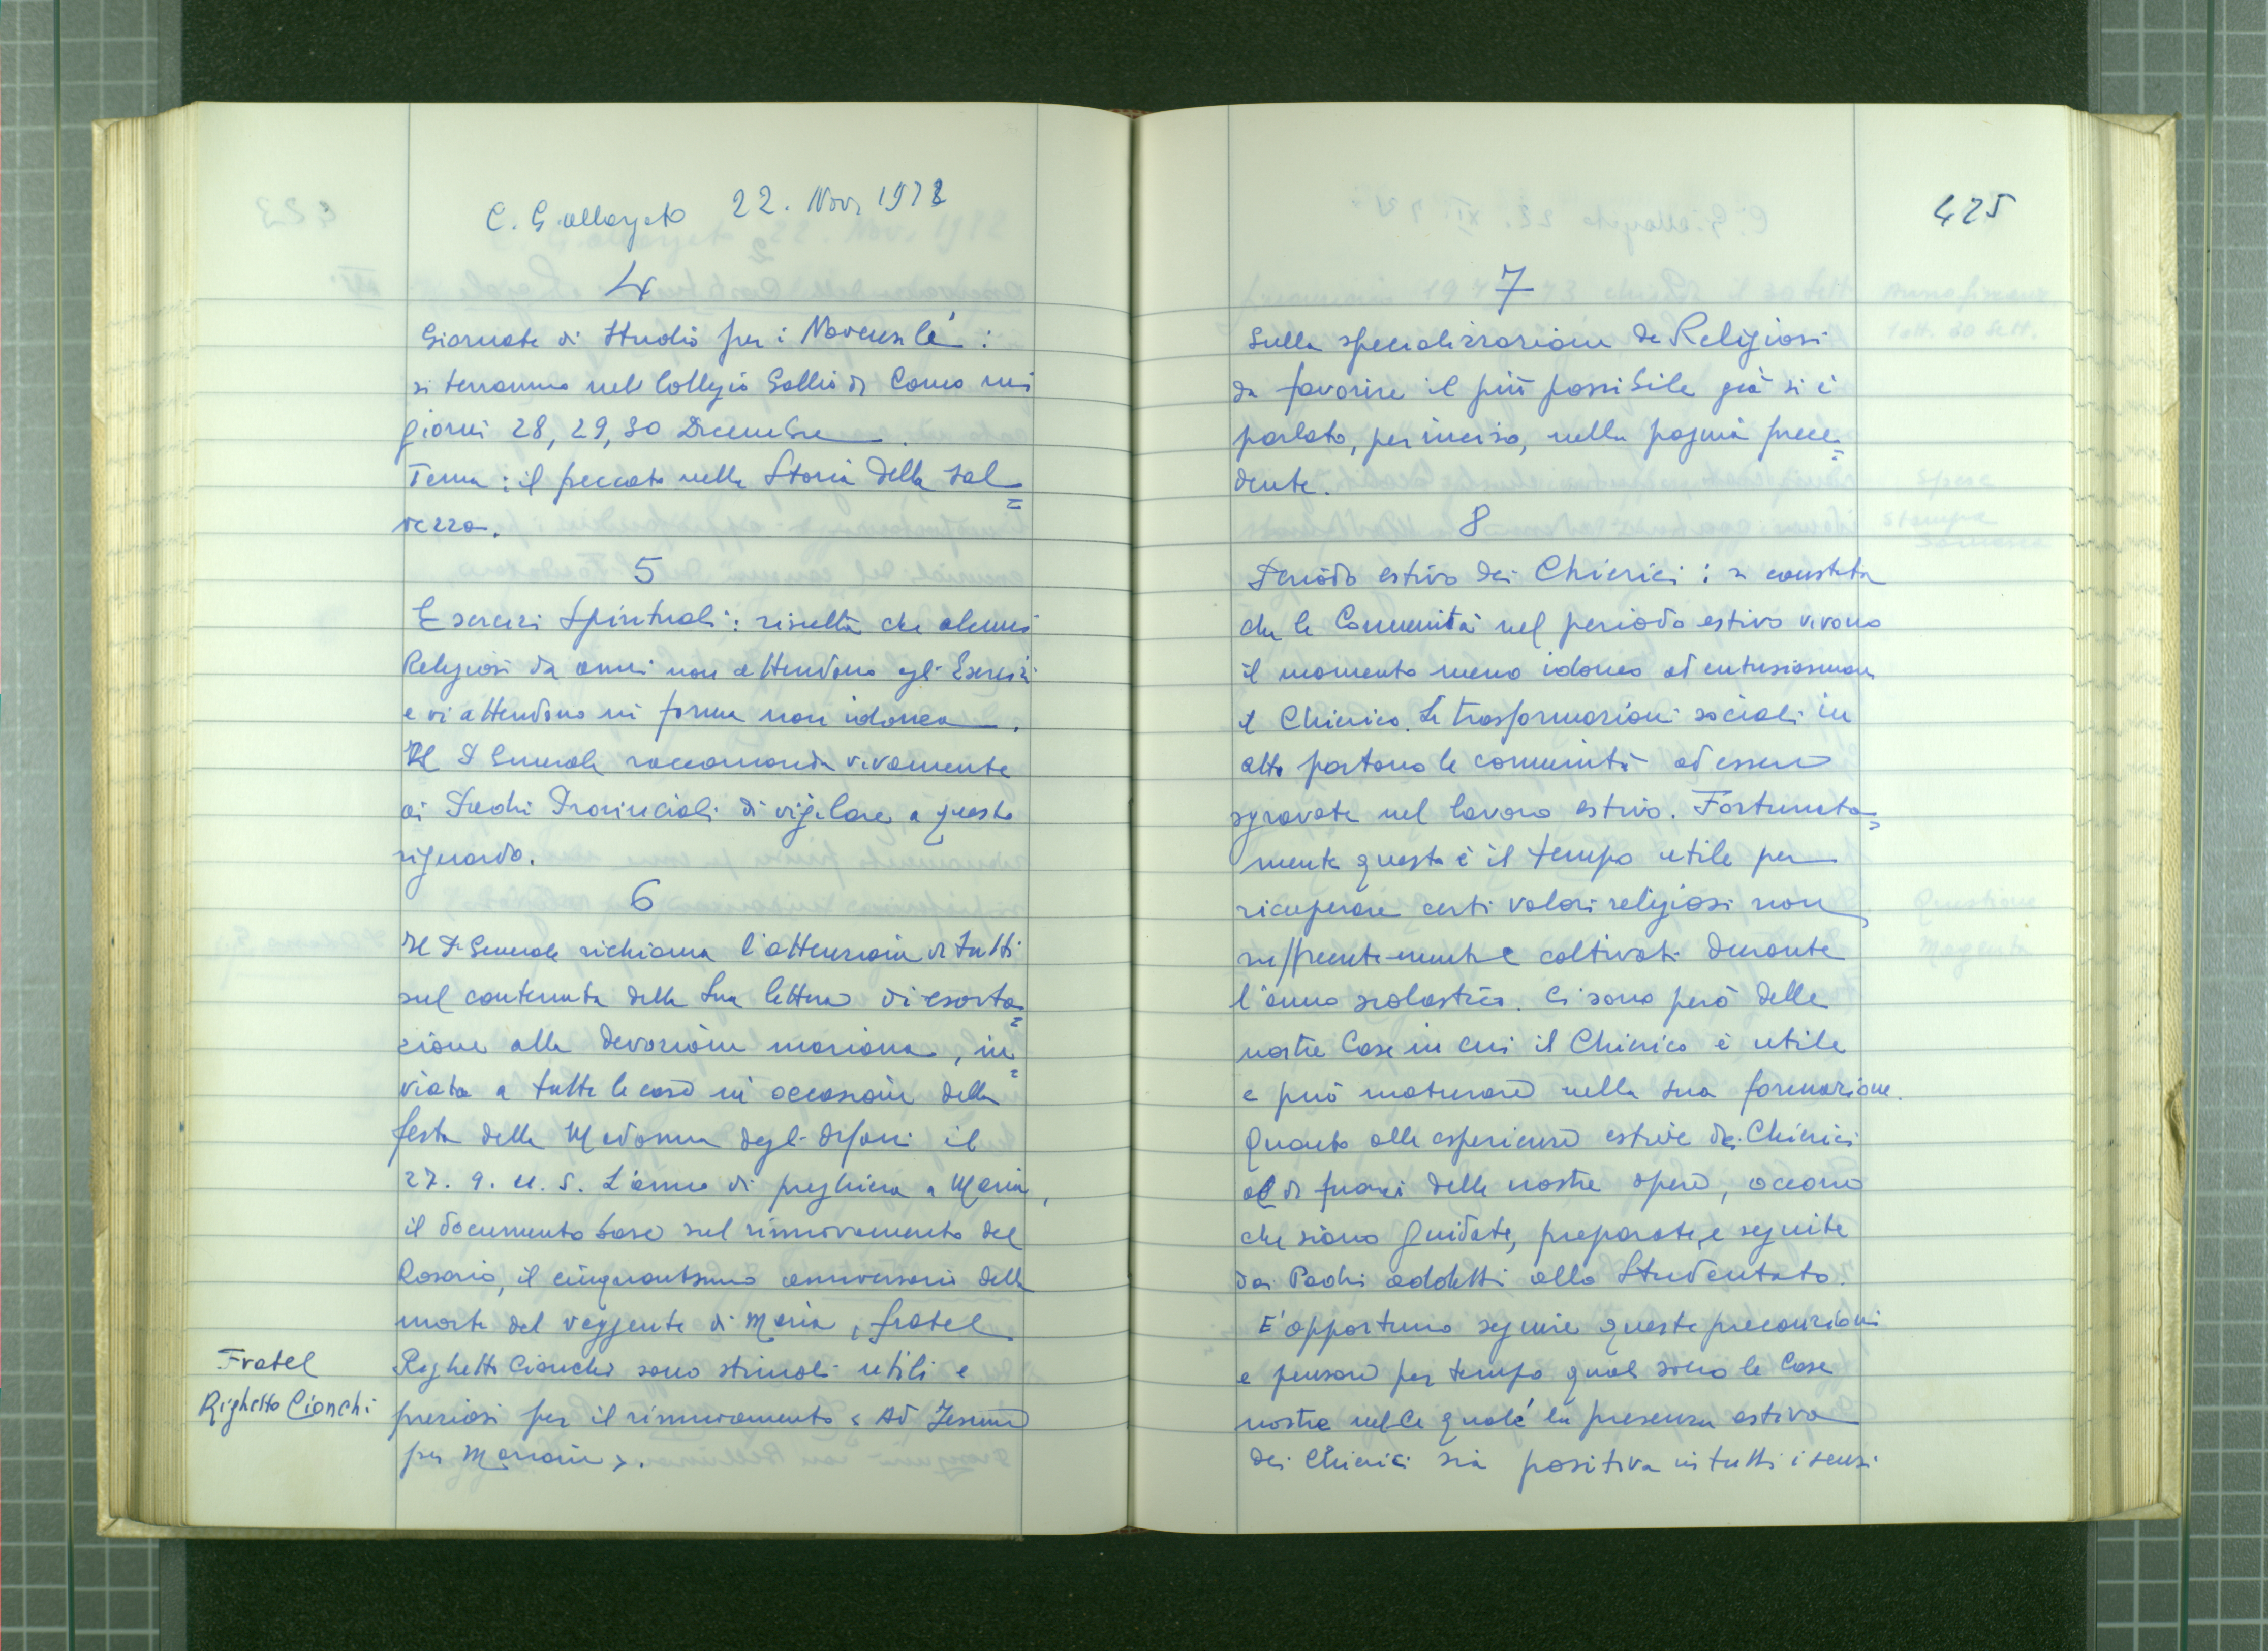 C. G. allargato 22. Nov. 1972
4
Giornate di Studio per i Novensilé:
si terranno nel Collegio Gallio di Como nei
giorni 28, 29, 30 Dicembre.
Tema: il peccato nella Storia della sal=
vezza.
5
Esercizi Spirituali: risulta che alcuni
Religiosi da anni non attendono agli Esercizi
e vi attendono in forma non idonea.
Il P. Generale raccomanda vivamente
ai Padri Provinciali di vigilare a questo
riguardo.
6
Il P. Generale richiama l'attenzione di tutti
sul contenuto della Sua lettera di esorta=
zione alla devozione mariana, in=
viata a tutte le case in occasione della
festa della Madonna degli Orfani il
27. 9. u. s. L'anno di preghiera a Maria,
il documento base sul rinnovamento del
Rosario, il cinquantesimo anniversario della
morte del veggente di Maria, fratel
Righetto Cionchi sono stimoli utili e
preziosi per il rinnovamento « Ad Jesum
per Mariam ».
Fratel
Righetto Cionchi
425
7
Sulla specializzazione de Religiosi
da favorire il più possibile già si è
parlato, per inciso, nella pagina prece=
dente.
8
Periodo estivo dei Chierici: si constata
che le Comunità nel periodo estivo vivono
il momento meno idoneo ad entusiasmare
il Chierico. Le trasformazioni sociali in
atto portano le comunità ad essere
sgravate nel lavoro estivo. Fortunata=
mente questo è il tempo utile per
ricuperare certi valori religiosi non
sufficientemente coltivati durante
l'anno scolastico. Ci sono però delle
nostre Case in cui il Chierico è utile
e può maturare nella sua formazione.
Quanto alle esperienze estive dei Chierici
al di fuori delle nostre opere, occorre
che siano guidate, preparate, e seguite
dai Padri addetti allo Studentato.
E' opportuno seguire queste precauzioni
e pensare per tempo quali sono le Case
nostre nelle quali la presenza estiva
dei Chierici sia positiva in tutti i sensi